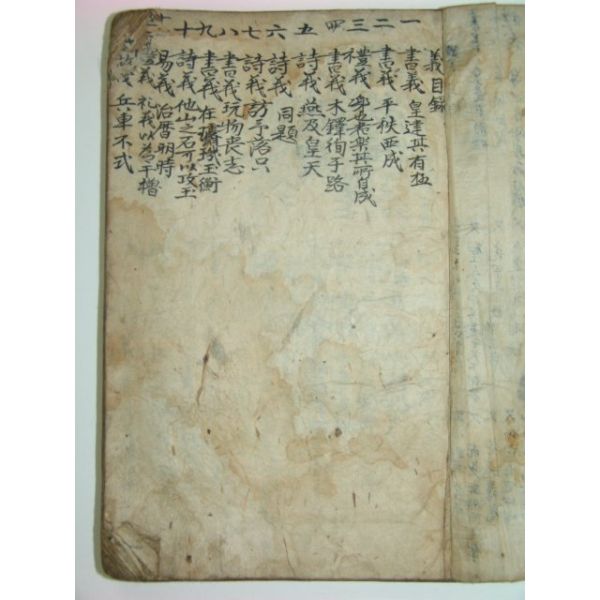 義目錄
一 書義 皇建其有極
二 書義 平秩西成
三 禮義 樂其所自成
四 書義 木鐸徇于路
五 詩義 燕及皇天
六 詩義 同題
七 詩義 訪予落只
八 書義 玩物喪志
九 書義 在璿璣玉衡
十 詩義 他山之石可以攻玉
易義 治曆明時
義 礼義以爲干櫓
兵車不式